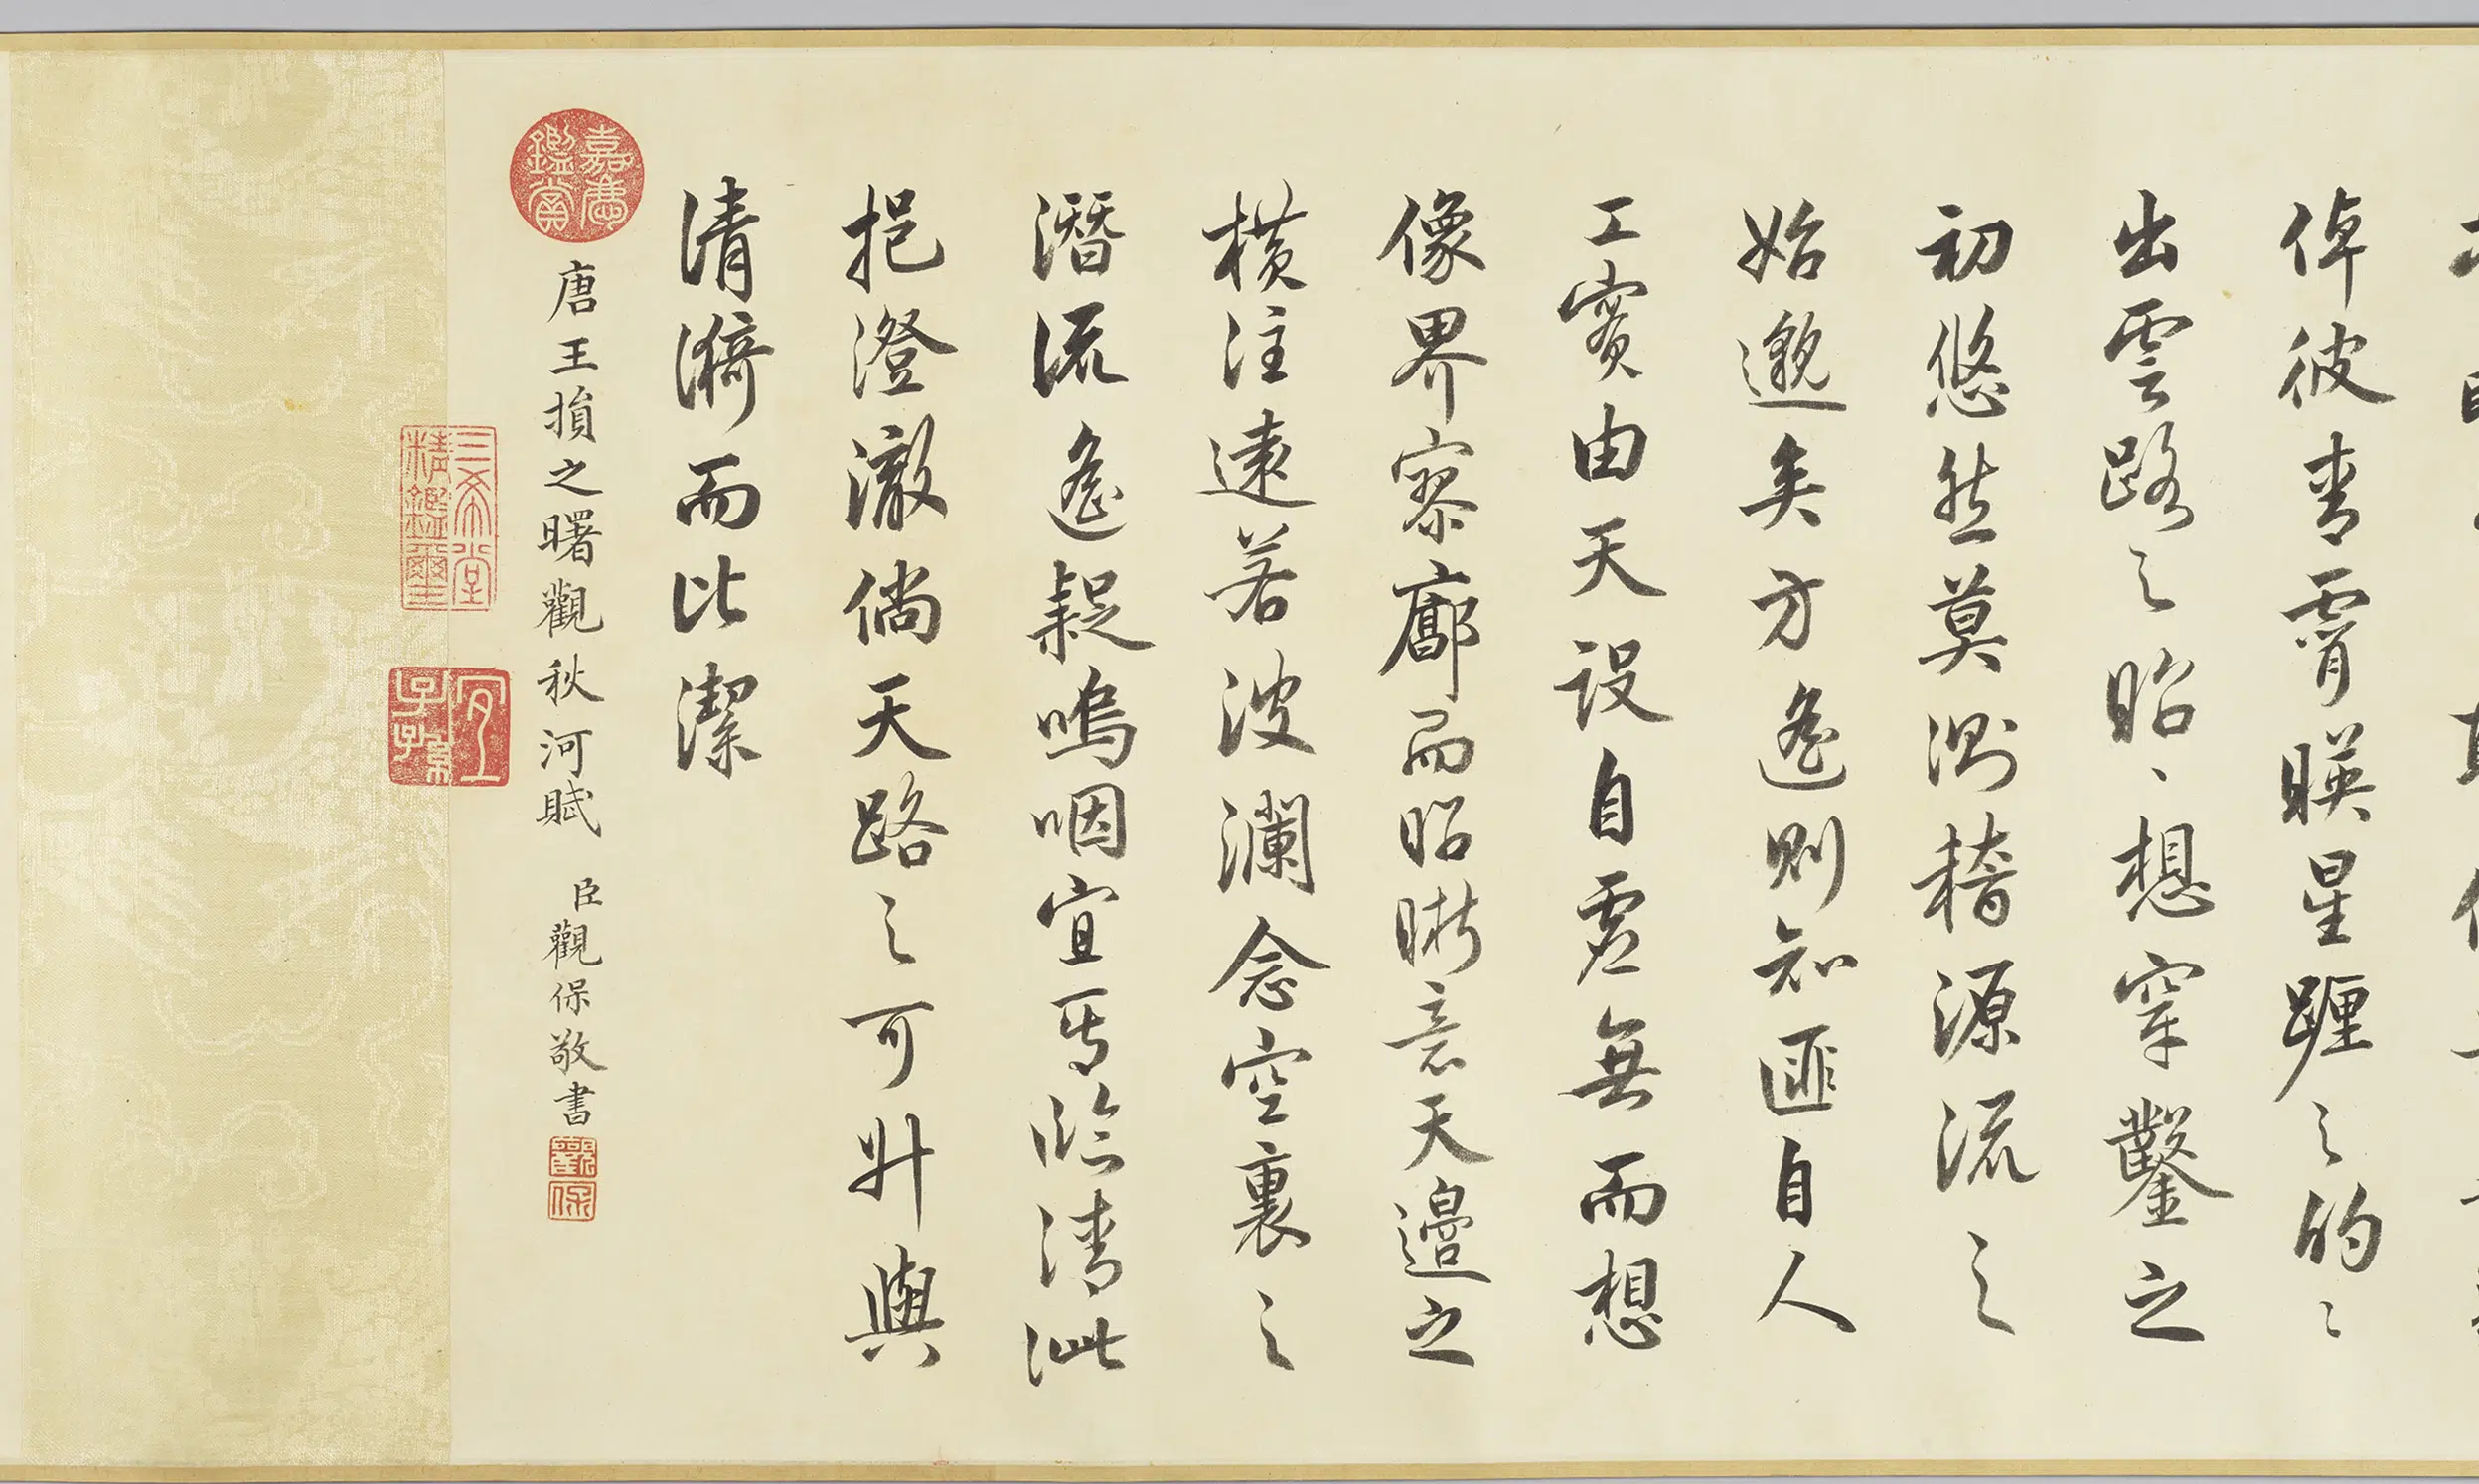 倬彼青霄暎星躔之的〻
出雲路之昭〻想穿鑿之
初悠然莫測稽源流之
始邈矣方遙則知匪自人
工實由天設自虛無而想
像界寥廓而昭晰意天邉之
橫注遠若波瀾念空裏之
潛流遙疑嗚咽宜其臨清泚
挹澄澈倘天路之可升與
清漪而比潔
唐王損之曙觀秋河賦 臣觀保敬書
嘉慶鑑賞
三希堂精鑑璽
宜子孫
觀保